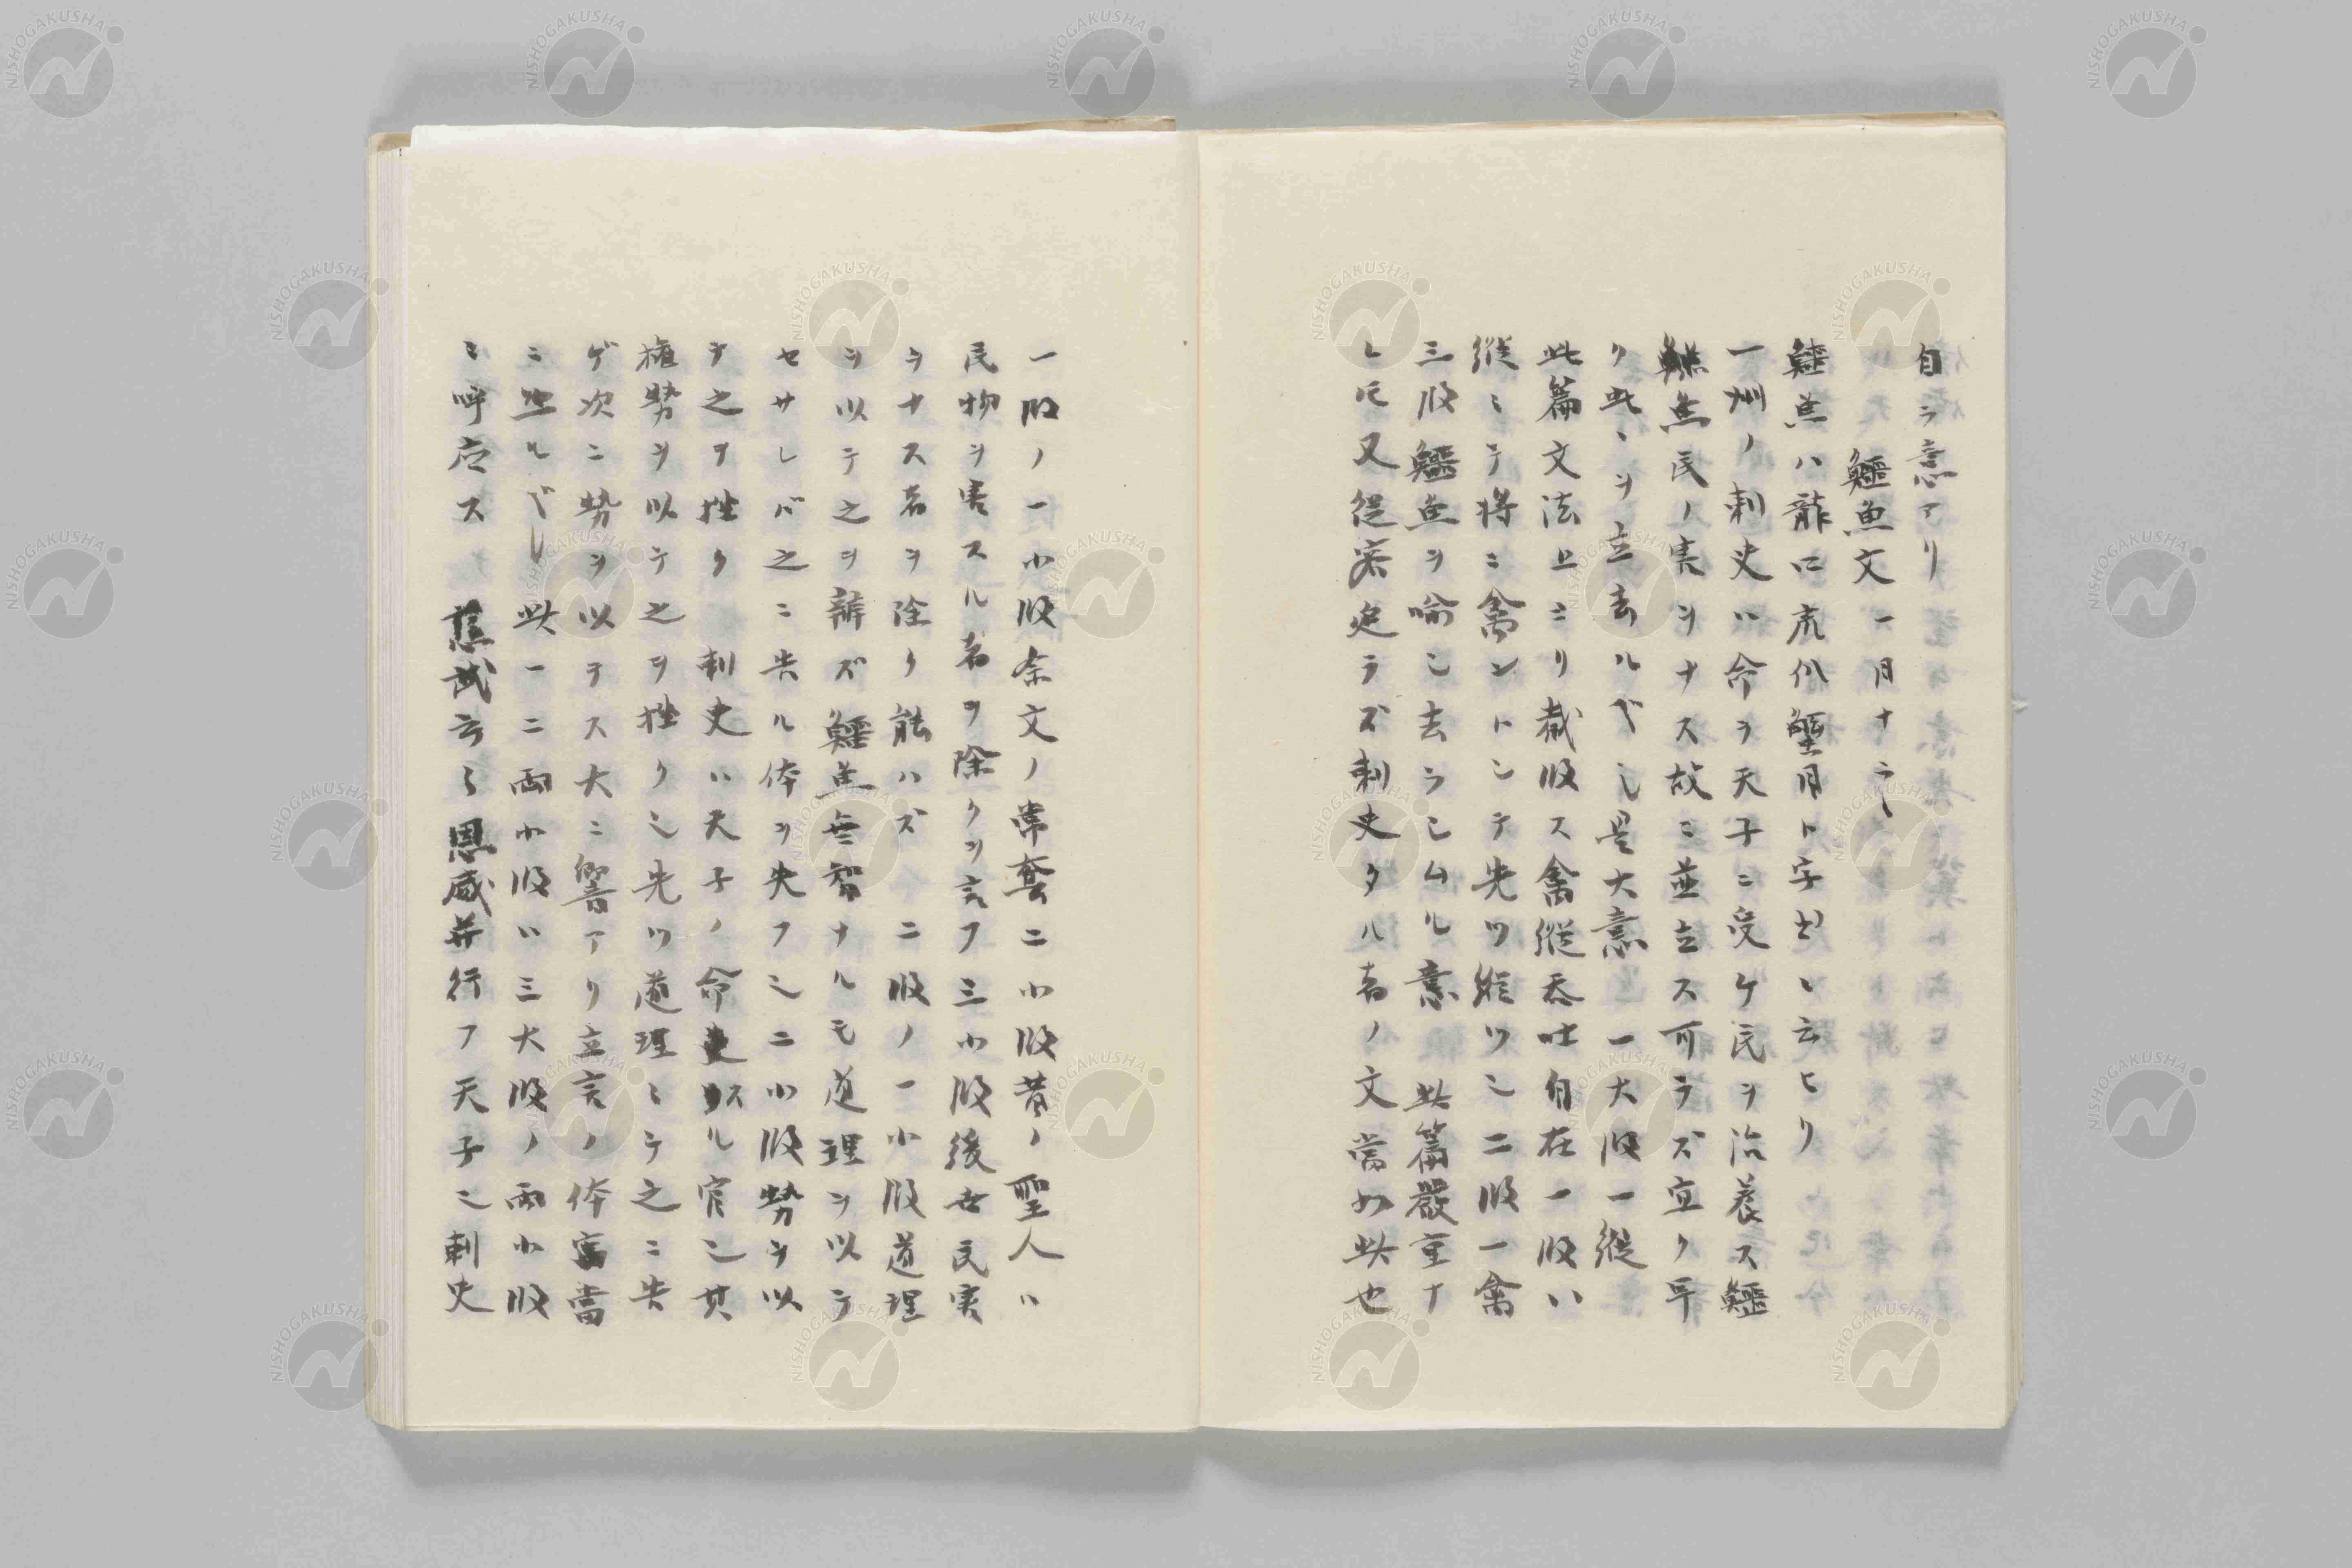 自ラ意アリ
鱷魚文 一月ナラ〵
鱷魚ハ龍口虎爪蟹目ト字書ニ云ヒリ
一州ノ刺史ハ命ヲ天子ニ受ケ民ヲ治養ス鱷
鱷魚民ノ害ヲナス故ニ並立ス可ラズ宜ク早
ク此ヲ立去ルベシ是大意 一大股一縦
此篇文法上ニリ裁股ス禽縦呑吐自在一股ハ
縦ニテ将ニ禽ントシテ先ツ縦ツシ二股一禽
三股鱷魚ヲ喩シ去ラシムル意 此篇嚴重ナ
レ𪜈又従容迫ラズ刺史タル者ノ文當如此也
一股ノ一小股余文ノ常套二小股昔ノ聖人ハ
民物ヲ害スル者ヲ除クヲ言フ三小股後世民害
ヲナス者ヲ除ク能ハズ 二股ノ一小股道理
ヲ以テ之ヲ辨ズ鱷魚無智ナルモ道理ヲ以テ
セサレバ之ニ告ル体ヲ失フ也二小股勢ヲ以
テ之ヲ挫ク 刺史ハ天子ノ命吏タル官也其
権勢ヲ以テ之ヲ挫ク也先ツ道理ニテ之ニ告
ゲ次ニ勢ヲ以テス大ニ響アリ立言ノ体當
ニ然ルベシ 此一二両小股ハ三大股ノ両小股
ニ呼応ス 慈武云々恩威并行フ天子也刺史